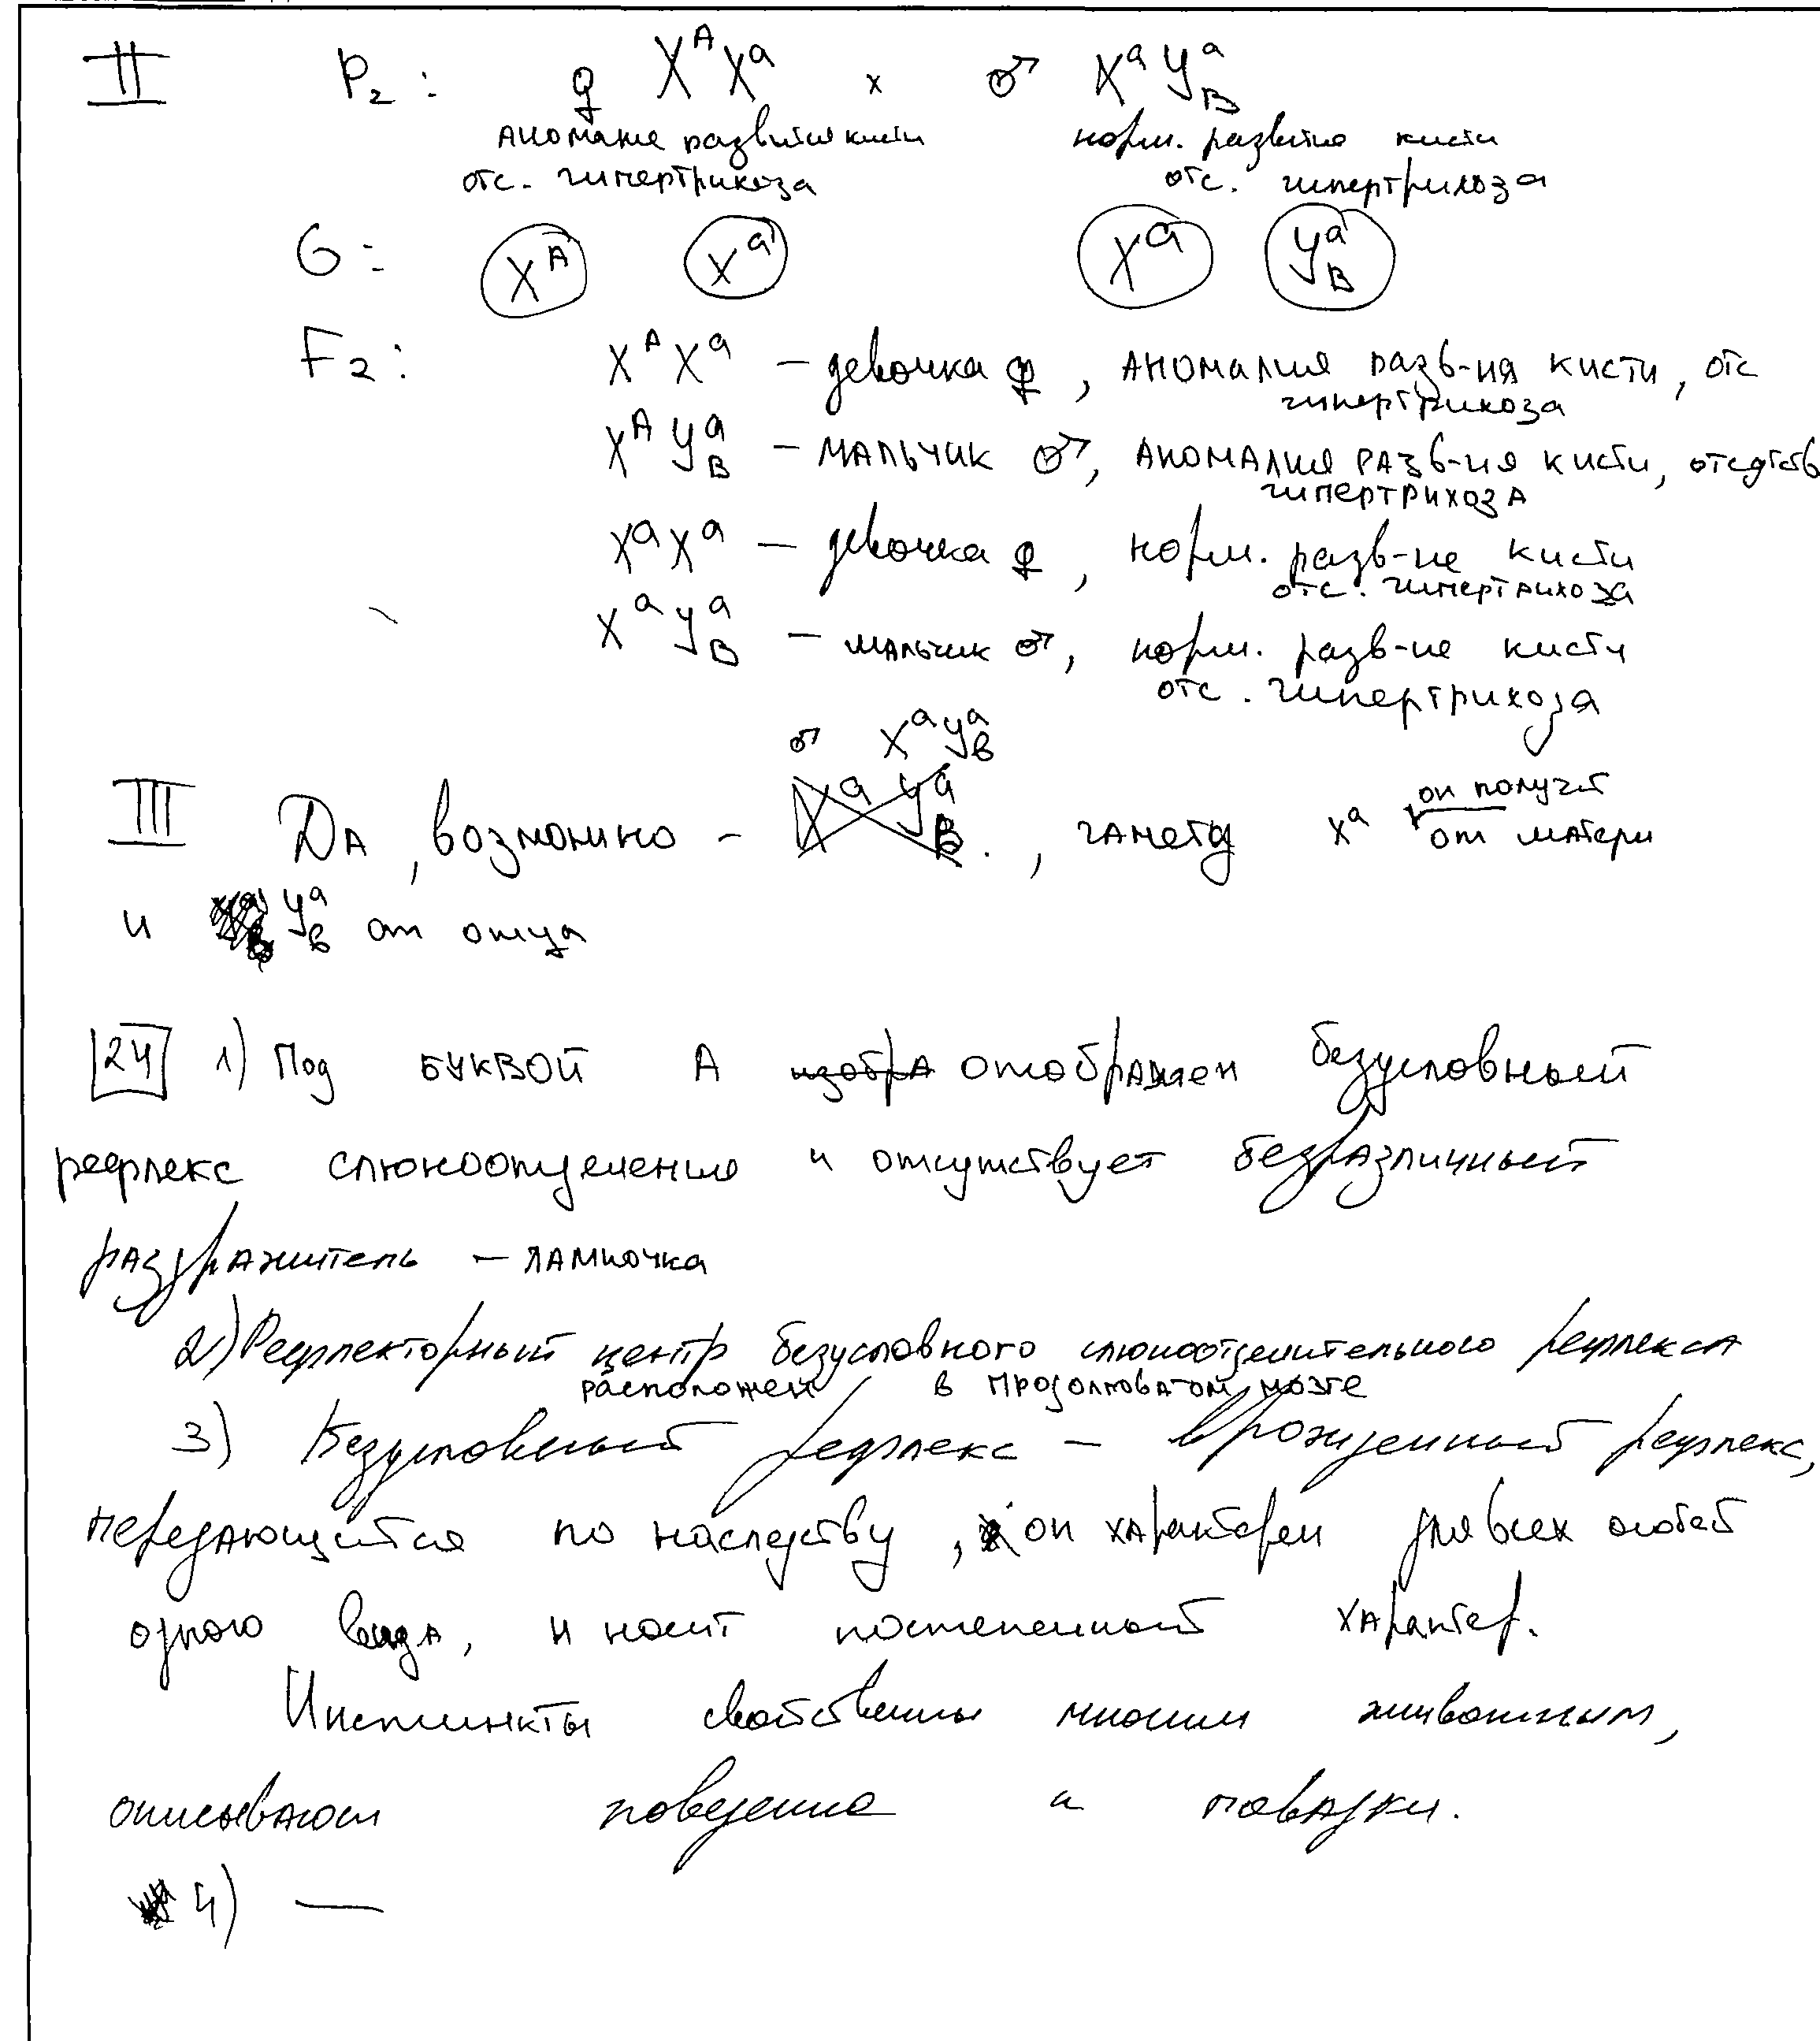 II P₂: ♀ XᴬXᵃ x ♂ XᵃYᵃ_B
аномалие развития кисти норм. развитие кисти
отс. гипертрихоза отс. гипертрихоза
G: Xᴬ Xᵃ Xᵃ Yᵃ_B
F₂: XᴬXᵃ – девочка ♀, аномалия разв-ия кисти, отс
гипертрихоза
XᴬYᵃ_B – мальчик ♂, аномалия разв-ия кисти,
гипертрихоза
XᵃXᵃ – девочка ♀, норм. разв-ие кисти
отс. гипертрихоза
XᵃYᵃ_B – мальчик ♂, норм. разв-ие кисти
отс. гипертрихоза
♂ XᵃYᵃ_B
III Да, возможно – XᵃYᵃ_B., гамету Xᵃ он получит от матери
и Yᵃ_B от отца
24 1) Под буквой А изобра отображен безусловный
рефлекс слюноотделения и отсутствует безразличный
раздражитель – лампочка
2) Рефлекторный центр безусловного слюноотделительного рефлекса
расположен в продолговатом мозге
3) Безусловный рефлекс – врожденный рефлекс,
передающийся по наследству, он характерен для всех особей
одного вида, и носит постепенный характер.
Инстинкты свойственны многим животным,
описывают поведение и повадки.
4) —